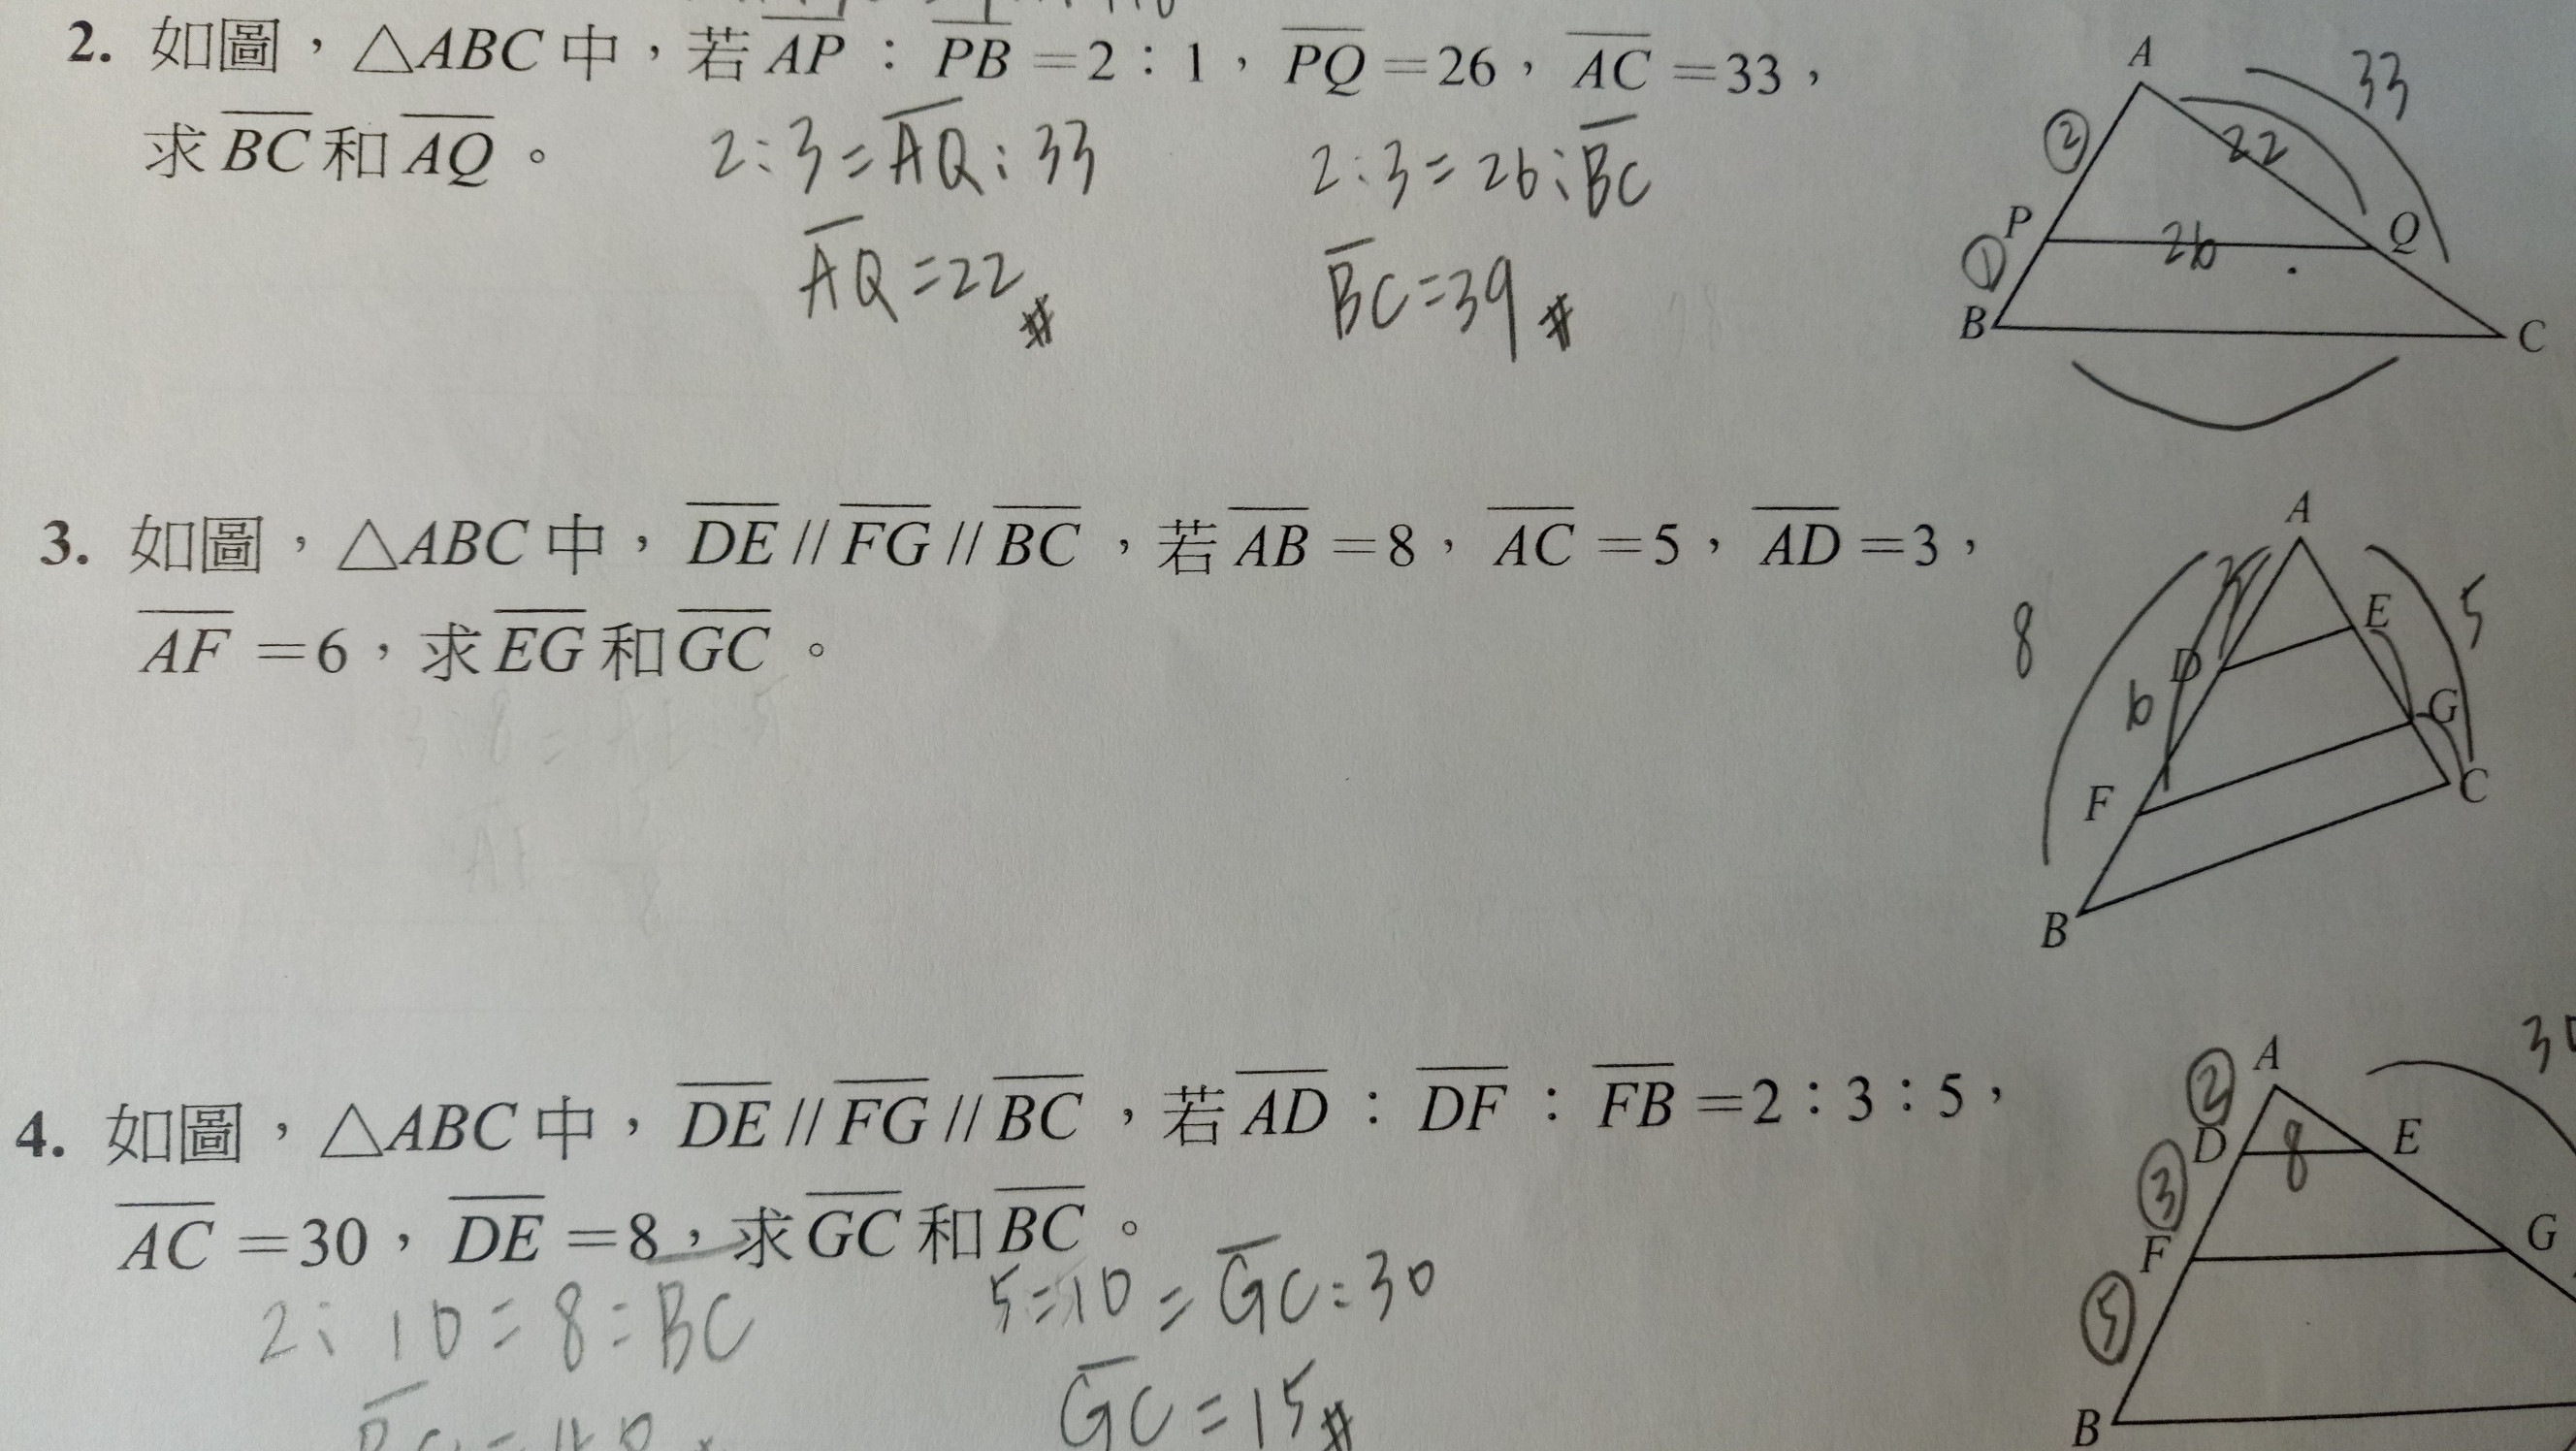 2. 如圖，△ABC 中，若 AP : PB = 2 : 1，PQ = 26，AC = 33，
求 BC 和 AQ 。
2:3=AQ:33
2:3=26:BC
AQ=22#
BC=39#
A
33
②
22
P
26
Q
①
B
C
3. 如圖，△ABC 中，DE // FG // BC，若 AB = 8，AC = 5，AD = 3，
AF = 6，求 EG 和 GC 。
A
3
E
8
5
D
6
G
F
C
B
4. 如圖，△ABC 中，DE // FG // BC，若 AD : DF : FB = 2 : 3 : 5，
AC = 30，DE = 8，求 GC 和 BC 。
2:10=8=BC
5=10=GC:30
GC=15#
A
②
D
8
E
③
F
G
⑤
B